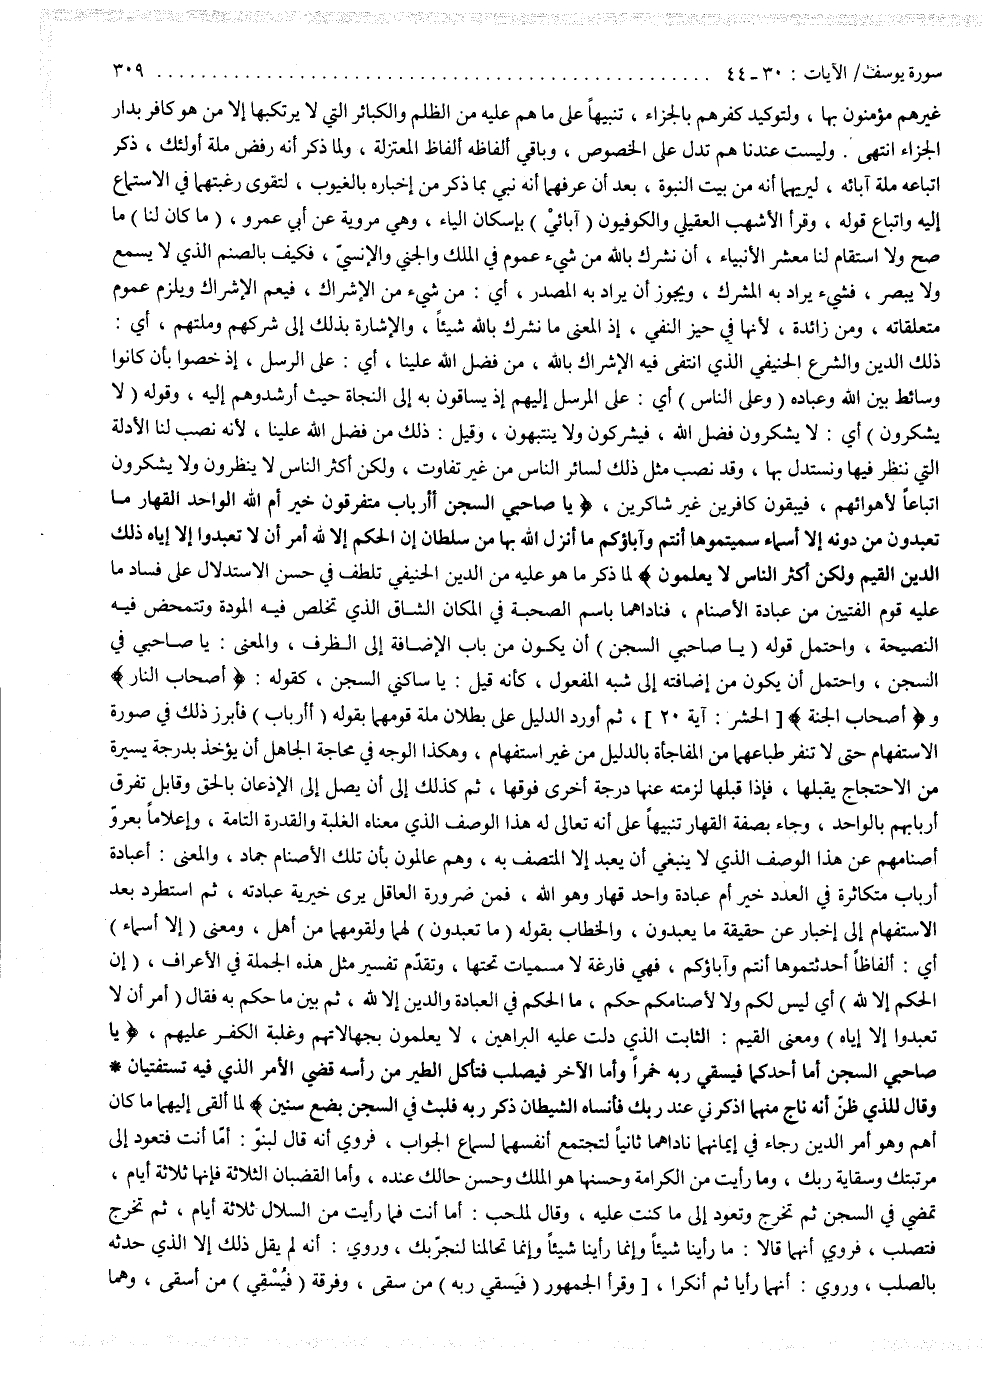 سورة يوسف / الآيات : ٣٠ ـ ٤٤ ........................................ ٣٠٩
غيرهم مؤمنون بها ، ولتوكيد كفرهم بالجزاء ، تنبيهاً على ما هم عليه من الظلم والكبائر التي لا يرتكبها إلا من هو كافر بدار
الجزاء انتهى . وليست عندنا هم تدل على الخصوص ، وباقي ألفاظه ألفاظ المعتزلة ، ولما ذكر أنه رفض ملة أولئك ، ذكر
اتباعه ملة آبائه ، ليريهما أنه من بيت النبوة ، بعد أن عرفهما أنه نبي بما ذكر من إخباره بالغيوب ، لتقوى رغبتهما في الاستماع
إليه واتباع قوله ، وقرأ الأشهب العقيلي والكوفيون ( آبائيْ ) بإسكان الياء ، وهي مروية عن أبي عمرو ، ( ما كان لنا ) ما
صح ولا استقام لنا معشر الأنبياء ، أن نشرك بالله من شيء عموم في الملك والجني والإنسيّ ، فكيف بالصنم الذي لا يسمع
ولا يبصر ، فشيء يراد به المشرك ، ويجوز أن يراد به المصدر ، أي : من شيء من الإشراك ، فيعم الإشراك ويلزم عموم
متعلقاته ، ومن زائدة ، لأنها في حيز النفي ، إذ المعنى ما نشرك بالله شيئاً ، والإشارة بذلك إلى شركهم وملتهم ، أي :
ذلك الدين والشرع الحنيفي الذي انتفى فيه الإشراك بالله ، من فضل الله علينا ، أي : على الرسل ، إذ خصوا بأن كانوا
وسائط بين الله وعباده ( وعلى الناس ) أي : على المرسل إليهم إذ يساقون به إلى النجاة حيث أرشدوهم إليه ، وقوله ( لا
يشكرون ) أي : لا يشكرون فضل الله ، فيشركون ولا ينتبهون ، وقيل : ذلك من فضل الله علينا ، لأنه نصب لنا الأدلة
التي ننظر فيها ونستدل بها ، وقد نصب مثل ذلك لسائر الناس من غير تفاوت ، ولكن أكثر الناس لا ينظرون ولا يشكرون
اتباعاً لأهوائهم ، فيبقون كافرين غير شاكرين ، ﴿ يا صاحبي السجن أأرباب متفرقون خير أم الله الواحد القهار ما
تعبدون من دونه إلا أسماء سميتموها أنتم وآباؤكم ما أنزل الله بها من سلطان إن الحكم إلا لله أمر أن لا تعبدوا إلا إياه ذلك
الدين القيم ولكن أكثر الناس لا يعلمون ﴾ لما ذكر ما هو عليه من الدين الحنيفي تلطف في حسن الاستدلال على فساد ما
عليه قوم الفتيين من عبادة الأصنام ، فناداهما باسم الصحبة في المكان الشاق الذي تخلص فيه المودة وتتمحض فيه
النصيحة ، واحتمل قوله ( يا صاحبي السجن ) أن يكون من باب الإضافة إلى الظرف ، والمعنى : يا صاحبي في
السجن ، واحتمل أن يكون من إضافته إلى شبه المفعول ، كأنه قيل : يا ساكني السجن ، كقوله : ﴿ أصحاب النار ﴾
و ﴿ أصحاب الجنة ﴾ [ الحشر : آية ٢٠ ] ، ثم أورد الدليل على بطلان ملة قومهما بقوله ( أأرباب ) فأبرز ذلك في صورة
الاستفهام حتى لا تنفر طباعهما من المفاجأة بالدليل من غير استفهام ، وهكذا الوجه في محاجة الجاهل أن يؤخذ بدرجة يسيرة
من الاحتجاج يقبلها ، فإذا قبلها لزمته عنها درجة أخرى فوقها ، ثم كذلك إلى أن يصل إلى الإذعان بالحق وقابل تفرق
أربابهم بالواحد ، وجاء بصفة القهار تنبيهاً على أنه تعالى له هذا الوصف الذي معناه الغلبة والقدرة التامة ، وإعلاماً بعروّ
أصنامهم عن هذا الوصف الذي لا ينبغي أن يعبد إلا المتصف به ، وهم عالمون بأن تلك الأصنام جماد ، والمعنى : أعبادة
أرباب متكاثرة في العدد خير أم عبادة واحد قهار وهو الله ، فمن ضرورة العاقل يرى خيرية عبادته ، ثم استطرد بعد
الاستفهام إلى إخبار عن حقيقة ما يعبدون ، والخطاب بقوله ( ما تعبدون ) لهما ولقومهما من أهل ، ومعنى ( إلا أسماء )
أي : ألفاظاً أحدثتموها أنتم وآباؤكم ، فهي فارغة لا مسميات تحتها ، وتقدّم تفسير مثل هذه الجملة في الأعراف ، ( إن
الحكم إلا لله ) أي ليس لكم ولا لأصنامكم حكم ، ما الحكم في العبادة والدين إلا لله ، ثم بين ما حكم به فقال ( أمر أن لا
تعبدوا إلا إياه ) ومعنى القيم : الثابت الذي دلت عليه البراهين ، لا يعلمون بجهالاتهم وغلبة الكفر عليهم ، ﴿ يا
صاحبي السجن أما أحدكما فيسقي ربه خمراً وأما الآخر فيصلب فتأكل الطير من رأسه قضي الأمر الذي فيه تستفتيان *
وقال للذي ظنّ أنه ناج منهما اذكرني عند ربك فأنساه الشيطان ذكر ربه فلبث في السجن بضع سنين ﴾ لما ألقى إليهما ما كان
أهم وهو أمر الدين رجاء في إيمانهما ناداهما ثانياً لتجتمع أنفسهما لسماع الجواب ، فروي أنه قال لبنوّ : أمّا أنت فتعود إلى
مرتبتك وسقاية ربك ، وما رأيت من الكرامة وحسنها هو الملك وحسن حالك عنده ، وأما القضبان الثلاثة فإنها ثلاثة أيام ،
تمضي في السجن ثم تخرج وتعود إلى ما كنت عليه ، وقال لملحب : أما أنت فما رأيت من السلال ثلاثة أيام ، ثم تخرج
فتصلب ، فروي أنهما قالا : ما رأينا شيئاً وإنما رأينا شيئاً وإنما تحالمنا لنجرّبك ، وروي : أنه لم يقل ذلك إلا الذي حدثه
بالصلب ، وروي : أنهما رأيا ثم أنكرا ، [ وقرأ الجمهور ( فيَسقي ربه ) من سقى ، وفرقة ( فيُسْقِي ) من أسقى ، وهما